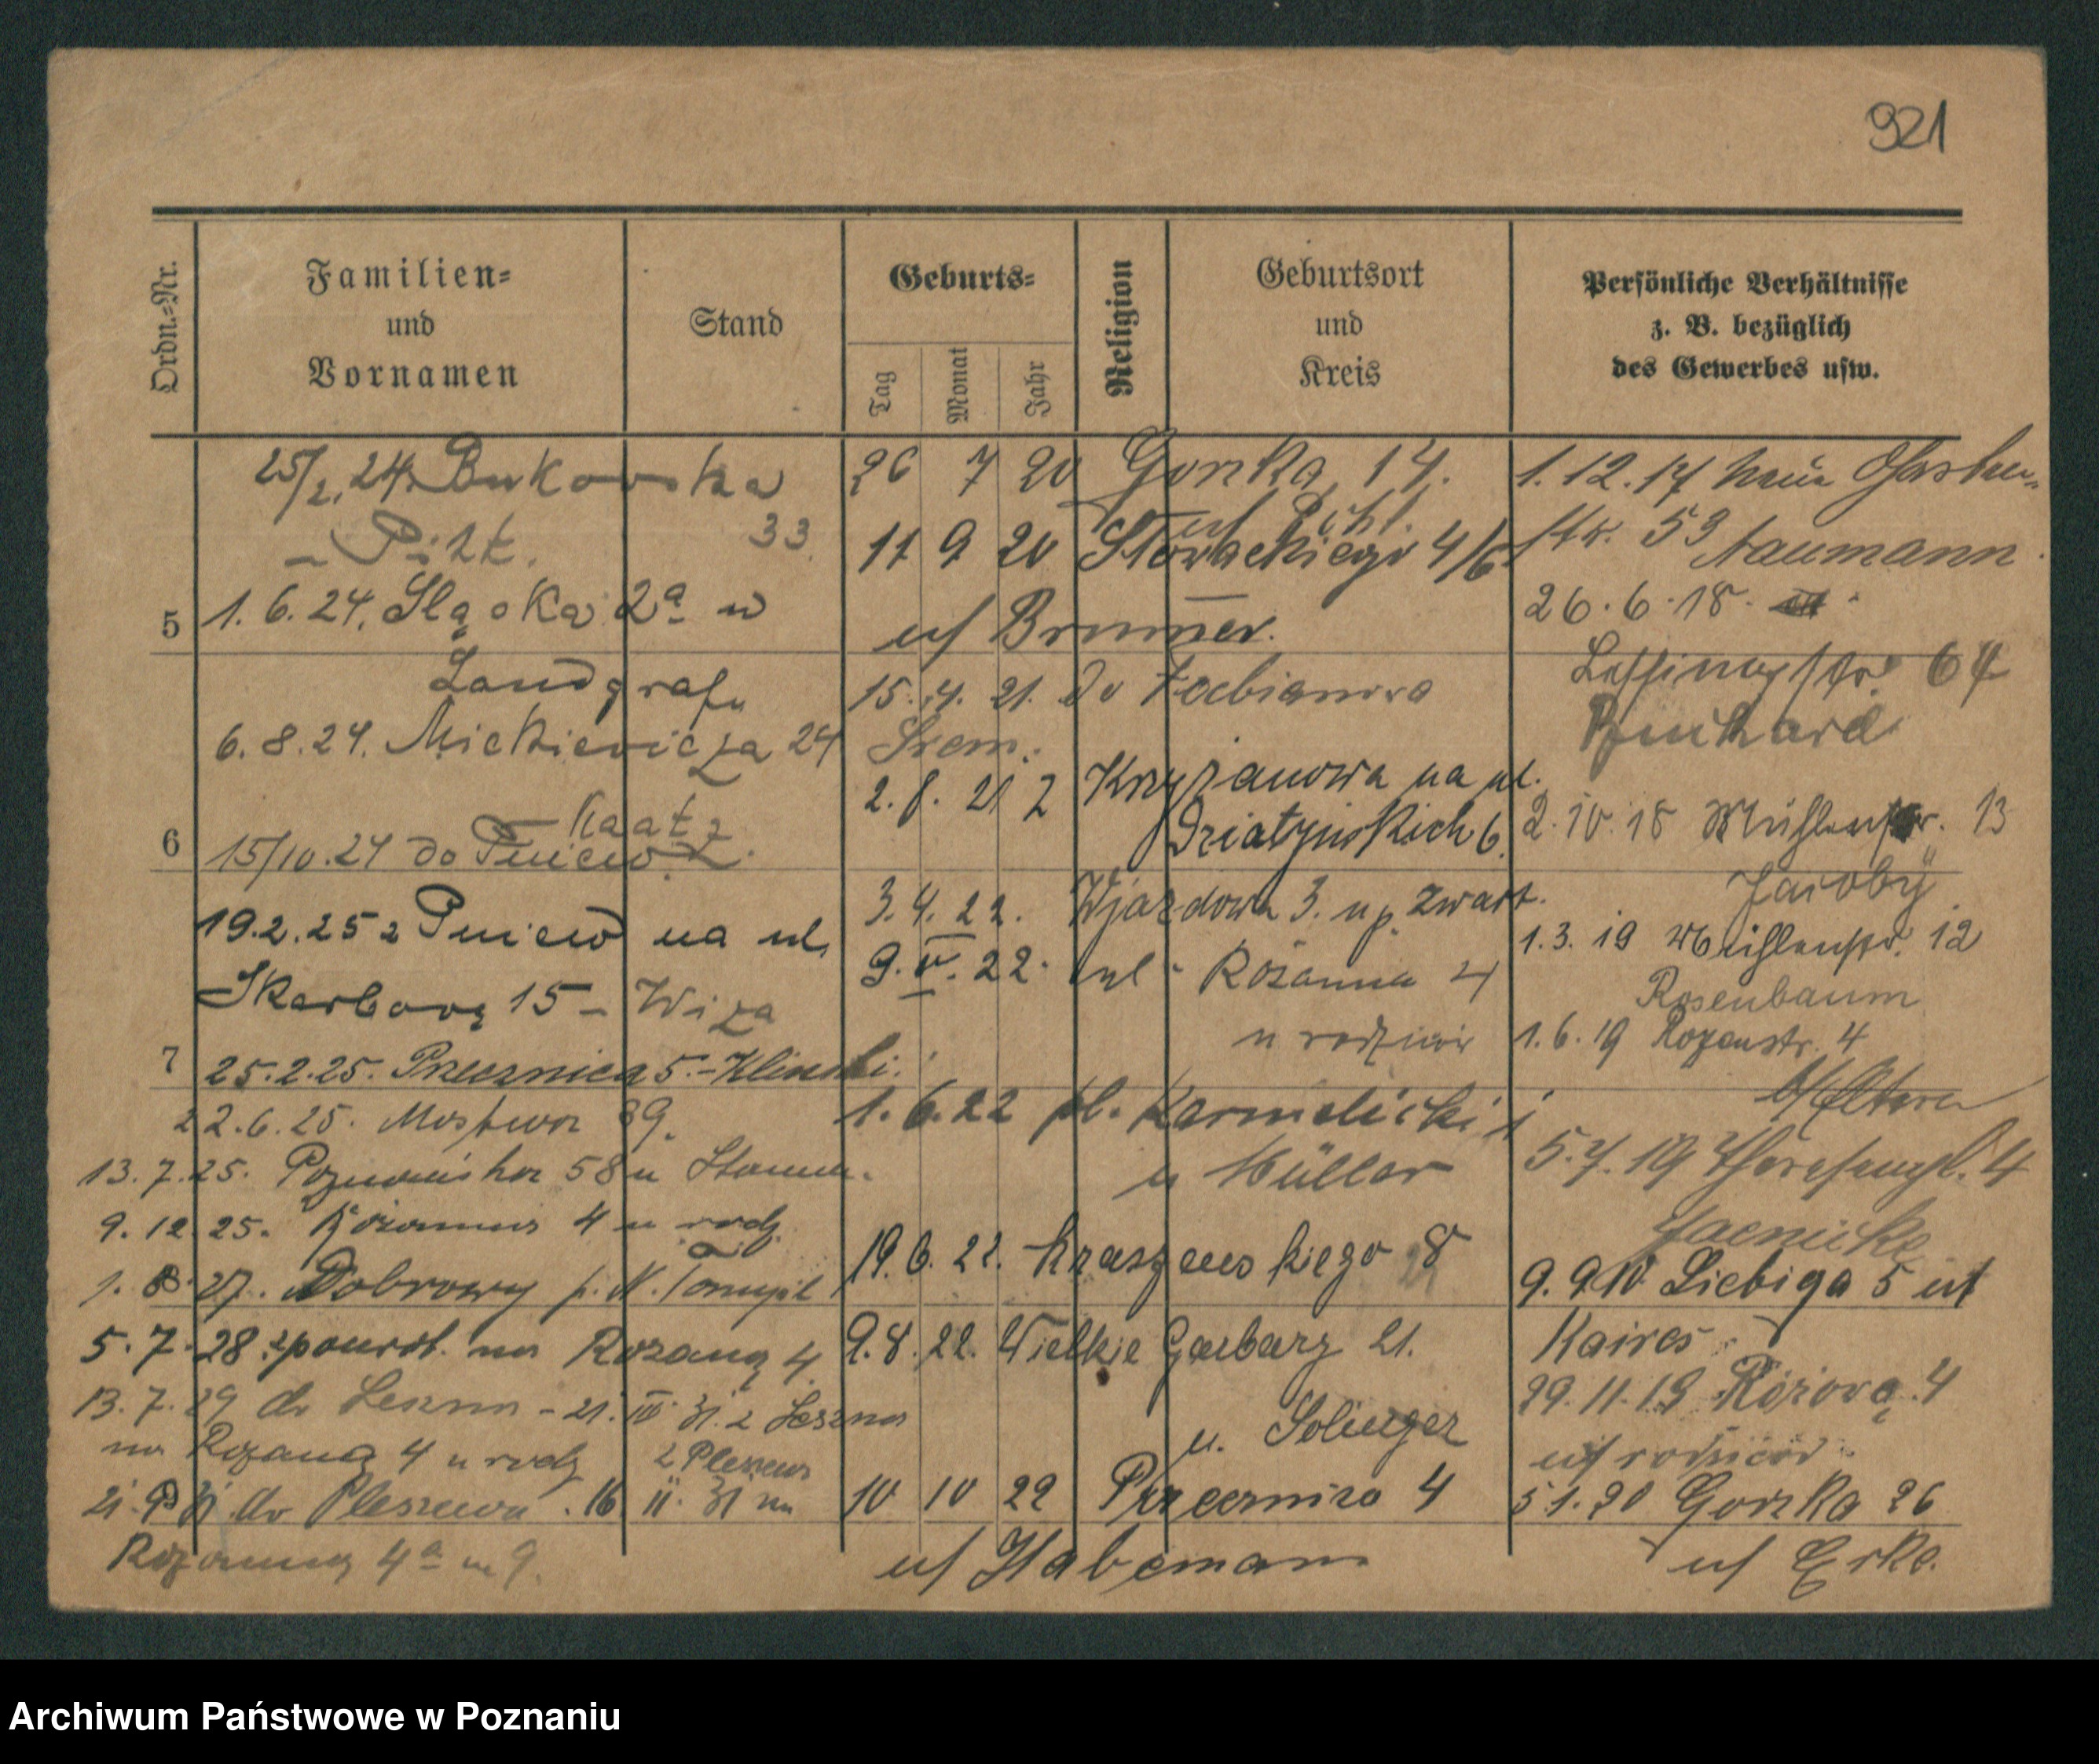 921
Ordn.-Nr.
Familien-
und
Vornamen
Stand
Geburts-
Tag
Monat
Jahr
Religion
Geburtsort
und
Kreis
Persönliche Verhältnisse
z. B. bezüglich
des Gewerbes usw.
25/2. 24. Bukowska
33
5
1. 6. 24. 2a u
Landgrafu
6. 8. 24. Mickiewicza 24
Kaatz
6
15/10. 24 do Pniew
19. 2. 25 z Pniew na ul.
Skarbową 15 – Wiza
7
25. 2. 25. Przecznica 5. –
22. 6. 25. Mostwa 39.
13. 7. 25. Poznańska 58 u
9. 12. 25. Różanna 4 u rodz.
27. Dobrowy p. N. Tomyśl
5. 7. 28 z powrot. na Rozaną 4
13. 7. 29 do Leszna – 21. III 31. z Leszna
na Rozaną 4 u rodz
z Pleszewa
do Pleszewa. 16 II. 31 na
4a m 9.
26 7 20 Gorska 14.
11 9 20 Słowackiego 4/6
u/ Brunner.
15. 4. 21. do Fabianowa
Srem.
2. 8. 21 z Krzyżanowa na ul.
Działyńskich 6.
3. 4. 22. Wjazdowa 3. u p. Zwart.
9. V. 22. ul. Różanna 4
u rodziców
1. 6. 22 pl. Karmelicki 1
u Müller
19. 6. 22. Kraszewskiego 8
9. 8. 22. Wielkie Garbary 21.
u. Solinger
10 10 22 Przecznica 4
u/ Habemann
1. 12. 17 Neue Garten-
str. 53 Naumann.
26. 6. 18.
Lessingstr. 64
2. 10. 18 Mühlenstr. 13
Jacoby
1. 3. 19 Mühlenstr. 12
Rosenbaum
1. 6. 19 Rozenstr. 4
b/ Eltern
5. 7. 19 4
Jaenicke
9. 9. 19 Liebiga 5 u/
Kaires
29. 11. 19 Różową 4
u/ rodziców
5. 1. 20 Gorska 26
u/ Erke.
Archiwum Państwowe w Poznaniu